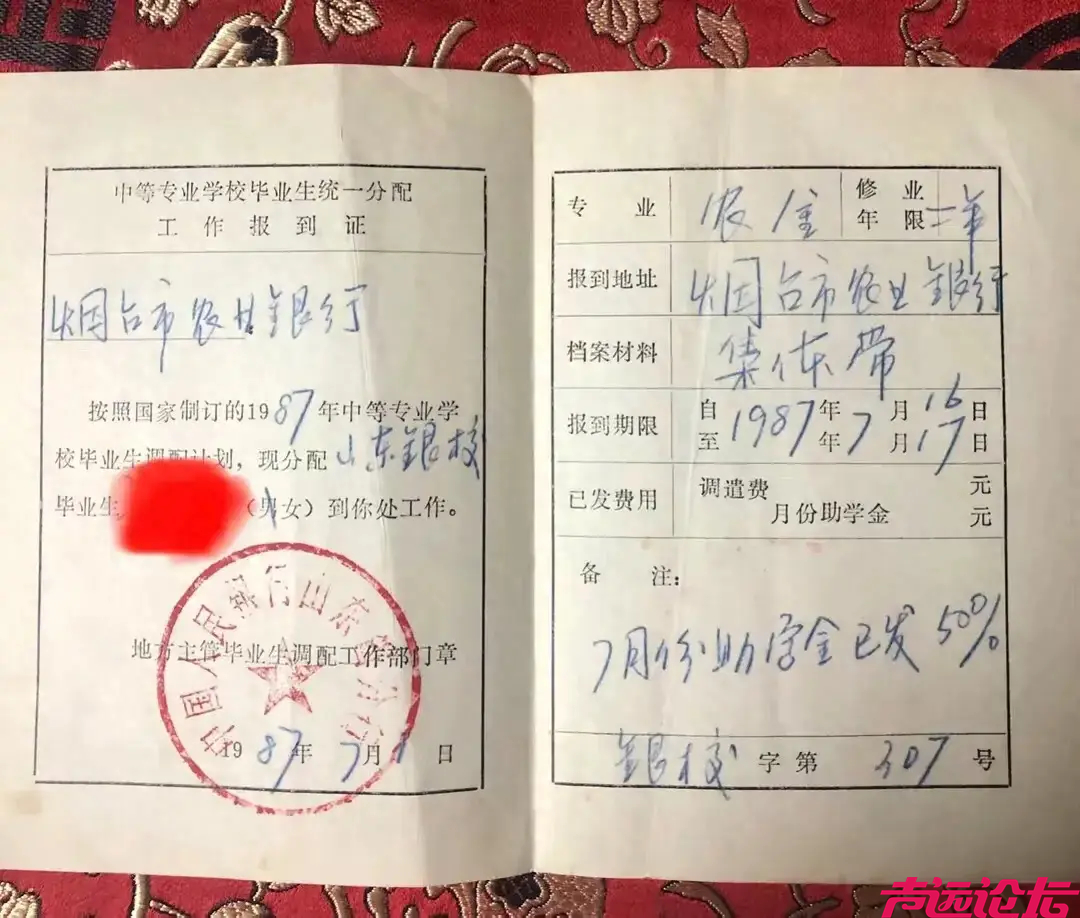 中等专业学校毕业生统一分配
工作报到证
烟台市农业银行
按照国家制订的1987年中等专业学
校毕业生调配计划，现分配山东银校
毕业生（男女）到你处工作。
地方主管毕业生调配工作部门章
1987年7月1日
中国人民银行山东省分行
专 业 农金 修业年限 二年
报到地址 烟台市农业银行
档案材料 集体带
报到期限 自1987年7月16日
至 年 月17日
已发费用 调遣费 元
月份助学金 元
备 注：
7月份助学金已发50%
银校 字第 307 号
声远论坛